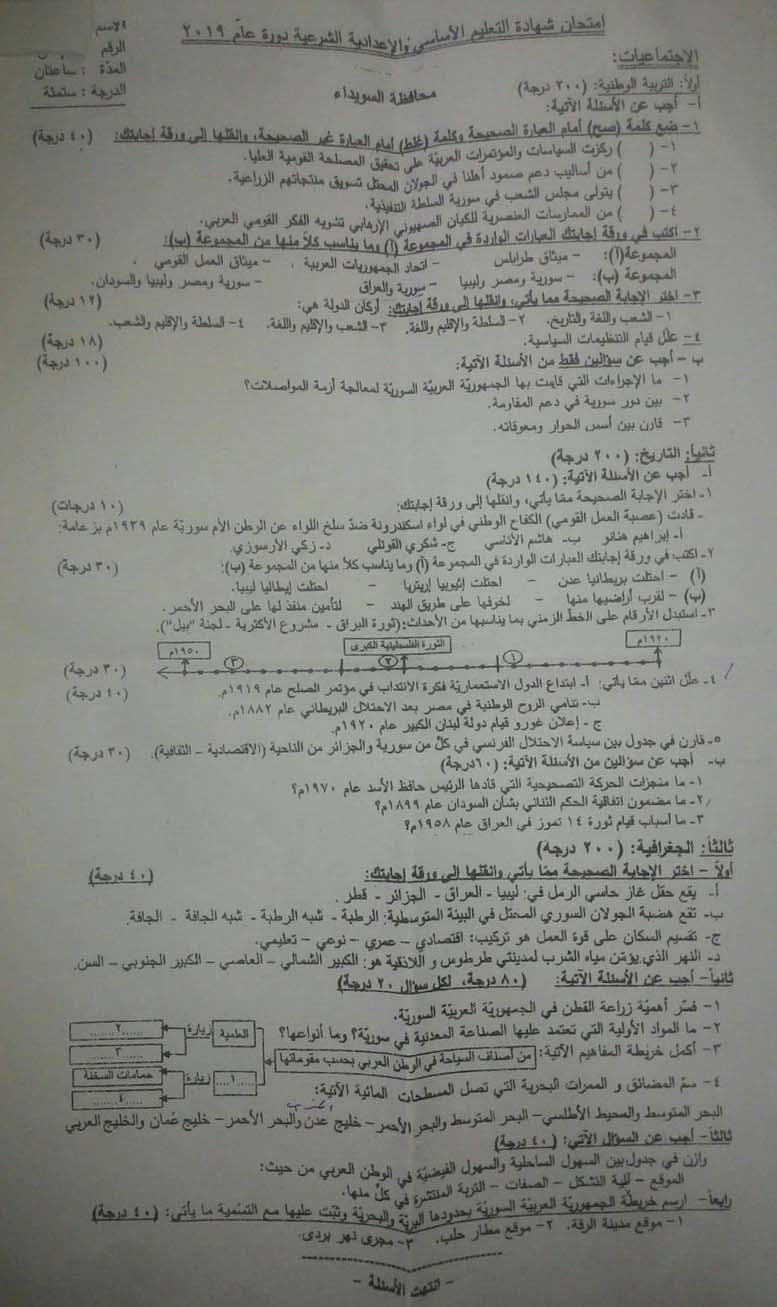 امتحان شهادة التعليم الأساسي والإعدادية الشرعية دورة عام ٢٠١٩
الاسم
الرقم
المدة : ساعتان
الدرجة: ستمئة
الاجتماعيات:
محافظة السويداء
أولاً: التربية الوطنية: (٢٠٠ درجة)
أ- أجب عن الأسئلة الآتية:
١- ضع كلمة (صح) أمام العبارة الصحيحة وكلمة (غلط) أمام العبارة غير الصحيحة، وانقلها إلى ورقة إجابتك: (٤٠ درجة)
١- ( ) ركزت السياسات والمؤتمرات العربية على تحقيق المصلحة القومية العليا.
٢- ( ) من أساليب دعم صمود أهلنا في الجولان المحتل تسويق منتجاتهم الزراعية.
٣- ( ) يتولى مجلس الشعب في سورية السلطة التنفيذية.
٤- ( ) من الممارسات العنصرية للكيان الصهيوني الإرهابي تشويه الفكر القومي العربي.
٢- اكتب في ورقة إجابتك العبارات الواردة في المجموعة (أ) وما يناسب كلاً منها من المجموعة (ب): (٣٠ درجة)
المجموعة(أ): - ميثاق طرابلس - اتحاد الجمهوريات العربية - ميثاق العمل القومي .
المجموعة (ب): - سورية ومصر وليبيا - سورية والعراق - سورية ومصر وليبيا والسودان.
٣- اختر الإجابة الصحيحة مما يأتي، وانقلها إلى ورقة إجابتك: أركان الدولة هي: (١٢ درجة)
١- الشعب واللغة والتاريخ. ٢- السلطة والإقليم واللغة. ٣- الشعب والإقليم واللغة. ٤- السلطة والإقليم والشعب.
٤- علّل قيام التنظيمات السياسية. (١٨ درجة)
ب - أجب عن سؤالين فقط من الأسئلة الآتية: (١٠٠ درجة)
١- ما الإجراءات التي قامت بها الجمهورية العربية السورية لمعالجة أزمة المواصلات؟
٢- بين دور سورية في دعم المقاومة.
٣- قارن بين أسس الحوار ومعوقاته.
ثانياً: التاريخ: (٢٠٠ درجة)
أ- أجب عن الأسئلة الآتية: (١٤٠ درجة)
١- اختر الإجابة الصحيحة ممّا يأتي، وانقلها إلى ورقة إجابتك: (١٠ درجات)
- قادت (عصبة العمل القومي) الكفاح الوطني في لواء اسكندرونة ضدّ سلخ اللواء عن الوطن الأم سوريّة عام ١٩٣٩م بزعامة:
أ- إبراهيم هنانو ب- هاشم الأتاسي ج- شكري القوتلي د- زكي الأرسوزي.
٢- اكتب في ورقة إجابتك العبارات الواردة في المجموعة (أ) وما يناسب كلاً منها من المجموعة (ب): (٣٠ درجة)
(أ) - احتلت بريطانيا عدن - احتلت إثيوبيا إريتريا - احتلت إيطاليا ليبيا.
(ب) - لقرب أراضيها منها - لخوفها على طريق الهند - لتأمين منفذ لها على البحر الأحمر.
٣- استبدل الأرقام على الخط الزمني بما يناسبها من الأحداث:(ثورة البراق - مشروع الأكثرية - لجنة "بيل").
١٩٢٠م ١ الثورة الفلسطينية الكبرى ٢ ٣ ١٩٥٠م
(٣٠ درجة)
٤- علّل اثنين ممّا يأتي: أ- ابتداع الدول الاستعماريّة فكرة الانتداب في مؤتمر الصلح عام ١٩١٩م. (٤٠ درجة)
ب- تنامي الروح الوطنية في مصر بعد الاحتلال البريطاني عام ١٨٨٢م.
ج - إعلان غورو قيام دولة لبنان الكبير عام ١٩٢٠م.
٥- قارن في جدول بين سياسة الاحتلال الفرنسي في كلّ من سورية والجزائر من الناحية (الاقتصادية - الثقافية). (٣٠ درجة)
ب- أجب عن سؤالين من الأسئلة الآتية: (٦٠درجة)
١- ما منجزات الحركة التصحيحية التي قادها الرئيس حافظ الأسد عام ١٩٧٠م؟
٢- ما مضمون اتفاقية الحكم الثنائي بشأن السودان عام ١٨٩٩م؟
٣- ما أسباب قيام ثورة ١٤ تموز في العراق عام ١٩٥٨م؟
ثالثاً: الجغرافية: (٢٠٠ درجة)
أولاً - اختر الإجابة الصحيحة ممّا يأتي وانقلها إلى ورقة إجابتك: (٤٠ درجة)
أ- يقع حقل غاز حاسي الرمل في: ليبيا - العراق - الجزائر - قطر .
ب- تقع هضبة الجولان السوري المحتل في البيئة المتوسطية: الرطبة - شبه الرطبة - شبه الجافة - الجافة.
ج- تقسيم السكان على قوة العمل هو تركيب: اقتصادي - عمري - نوعي - تعليمي.
د- النهر الذي يؤمّن مياه الشرب لمدينتي طرطوس و اللاذقية هو: الكبير الشمالي - العاصي - الكبير الجنوبي - السن.
ثانياً- أجب عن الأسئلة الآتية: (٨٠ درجة، لكل سؤال ٢٠ درجة)
١- فسّر أهميّة زراعة القطن في الجمهوريّة العربيّة السوريّة.
٢- ما المواد الأولية التي تعتمد عليها الصناعة المعدنية في سوريّة؟ وما أنواعها؟
٣- أكمل خريطة المفاهيم الآتية: من أصناف السياحة في الوطن العربي بحسب مقوماتها
العلمية زيارة ......٢......
......٣......
....١.... زيارة حمامات السخنة
......٤......
٤- سمّ المضائق و الممرات البحرية التي تصل المسطحات المائية الآتية:
البحر المتوسط والمحيط الأطلسي- البحر المتوسط والبحر الأحمر- خليج عدن والبحر الأحمر- خليج عُمان والخليج العربي
ثالثاً- أجب عن السؤال الآتي: (٤٠ درجة)
وازن في جدول بين السهول الساحلية والسهول الفيضيّة في الوطن العربي من حيث:
الموقع - آلية التشكل - الصفات - التربة المنتشرة في كلّ منها.
رابعاً- ارسم خريطة الجمهوريّة العربيّة السوريّة بحدودها البريّة والبحريّة وثبّت عليها مع التسمية ما يأتي: (٤٠ درجة)
١- موقع مدينة الرقة. ٢- موقع مطار حلب. ٣- مجرى نهر بردى.
- انتهت الأسئلة -